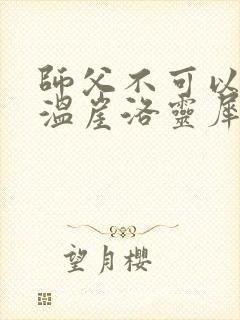 師父不可以
溫崖洛靈犀
望月櫻